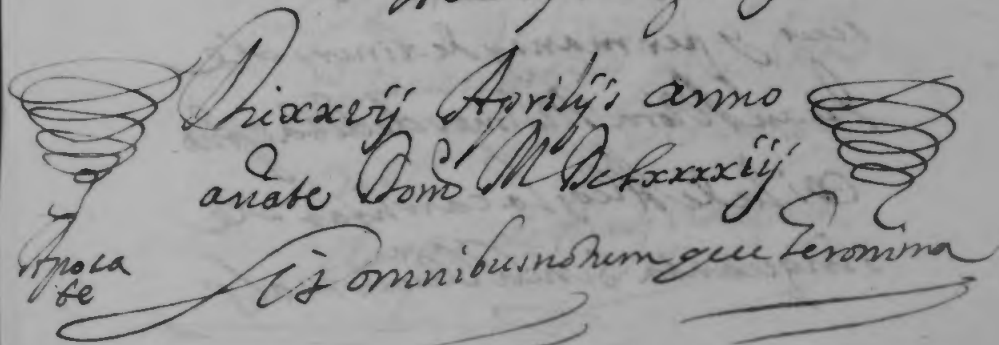 Die xxvij Aprilijs anno
a nate Domo MDCLxxxxiij
Apoca
te
Sit omnibus notum que Geronima